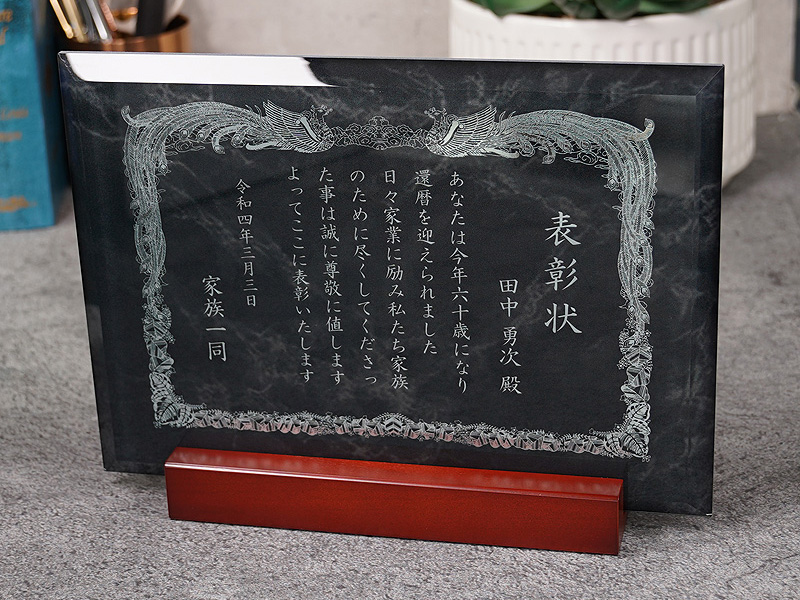 表彰状
田中 勇次 殿
あなたは今年六十歳になり
還暦を迎えられました
日々家業に励み私たち家族
のために尽くしてくださっ
た事は誠に尊敬に値します
よってここに表彰いたします
令和四年三月三日
家族一同